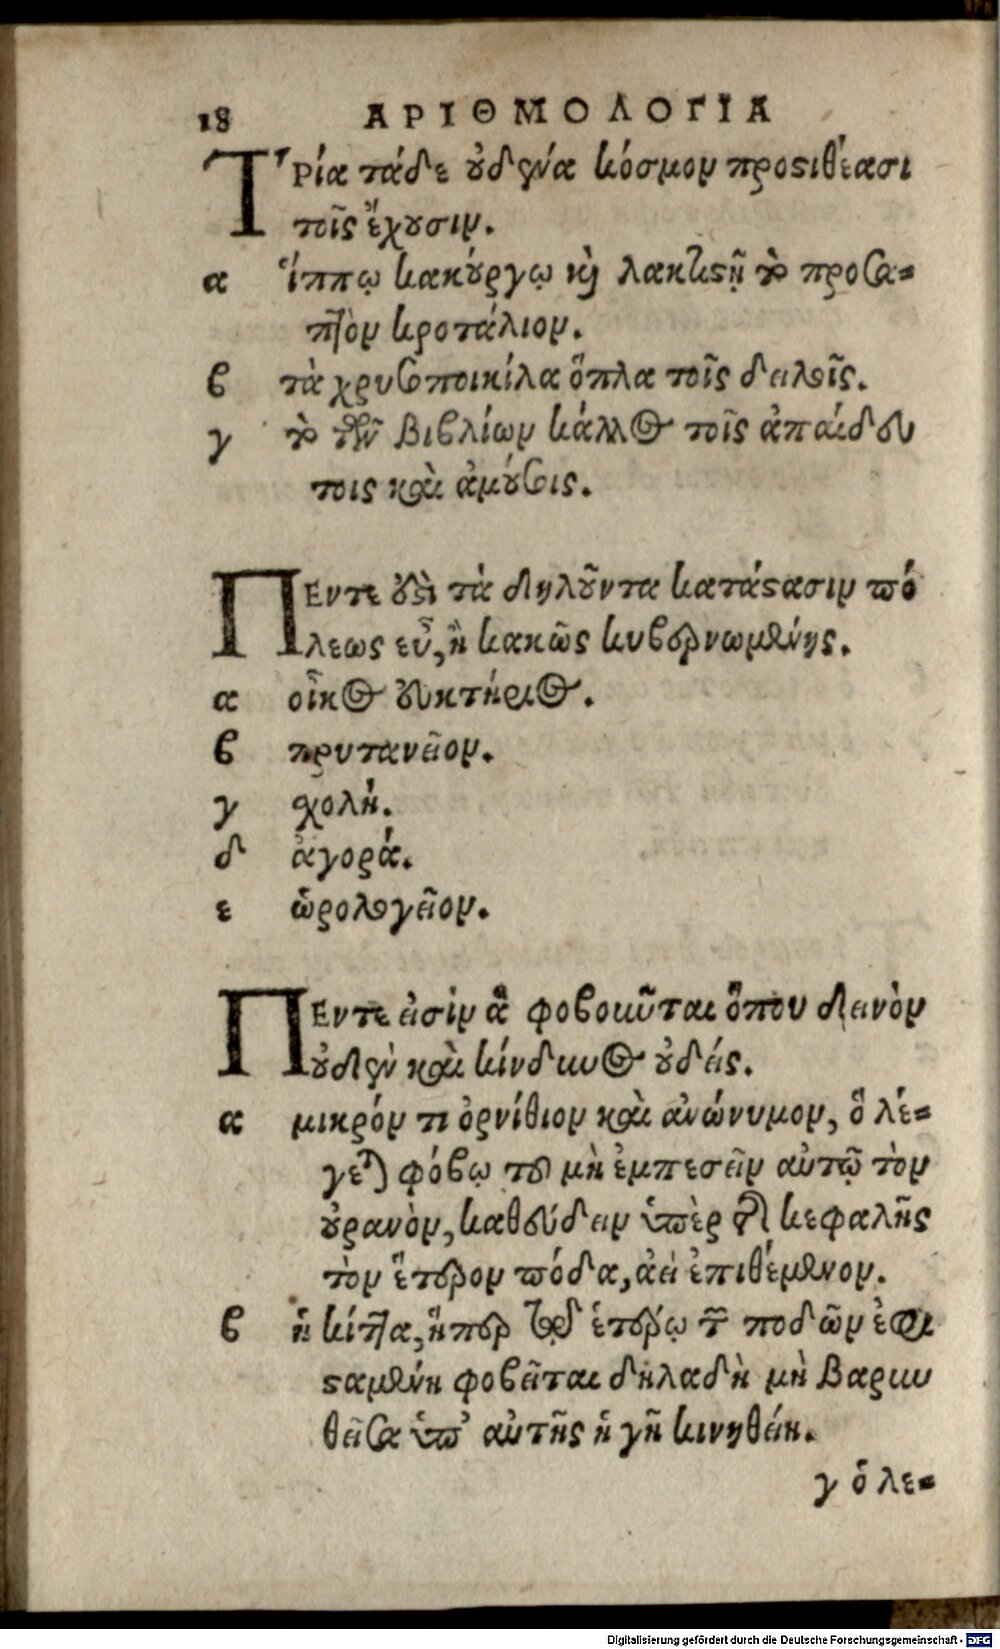 18 ΑΡΙΘΜΟΛΟΓΙΑ
Τρία τάδε οὐδένα κόσμον προστιθέασι
τοῖς ἔχουσιν.
α ἵππῳ κακούργῳ καὶ λακτιστῇ τὸ προσα-
πτὸν κροτάλιον.
β τὰ χρυσοποίκιλα ὅπλα τοῖς δειλοῖς.
γ τὸ τῶν βιβλίων κάλλος τοῖς ἀπαιδεύ
τοις καὶ ἀμούσοις.
ΠΕντε ἐστὶ τὰ δηλοῦντα κατάστασιν πό
λεως εὖ, ἢ κακῶς κυβερνωμένης.
α οἶκος εὐκτήριος.
β πρυτανεῖον.
γ σχολή.
δ ἀγορά.
ε ὡρολογεῖον.
ΠΕντε εἰσὶν ἃ φοβοῦνται ὅπου δεινὸν
οὐδὲν καὶ κίνδυνος οὐδείς.
α μικρόν τι ὀρνίθιον καὶ ἀνώνυμον, ὃ λέ-
γεται φόβῳ τοῦ μὴ ἐμπεσεῖν αὐτῷ τὸν
οὐρανὸν, καθεύδειν ὑπὲρ τῆς κεφαλῆς
τὸν ἕτερον πόδα, ἀεὶ ἐπιθέμενον.
β ἡ κίττα, ἥπερ ἐπὶ ἑτέρῳ τῶν ποδῶν ἐφι
σταμένη φοβεῖται δηλαδὴ μὴ βαρυν
θεῖσα ὑπ᾽ αὐτῆς ἡ γῆ κινηθείη.
γ ὁ λε-
Digitalisierung gefördert durch die Deutsche Forschungsgemeinschaft - DFG